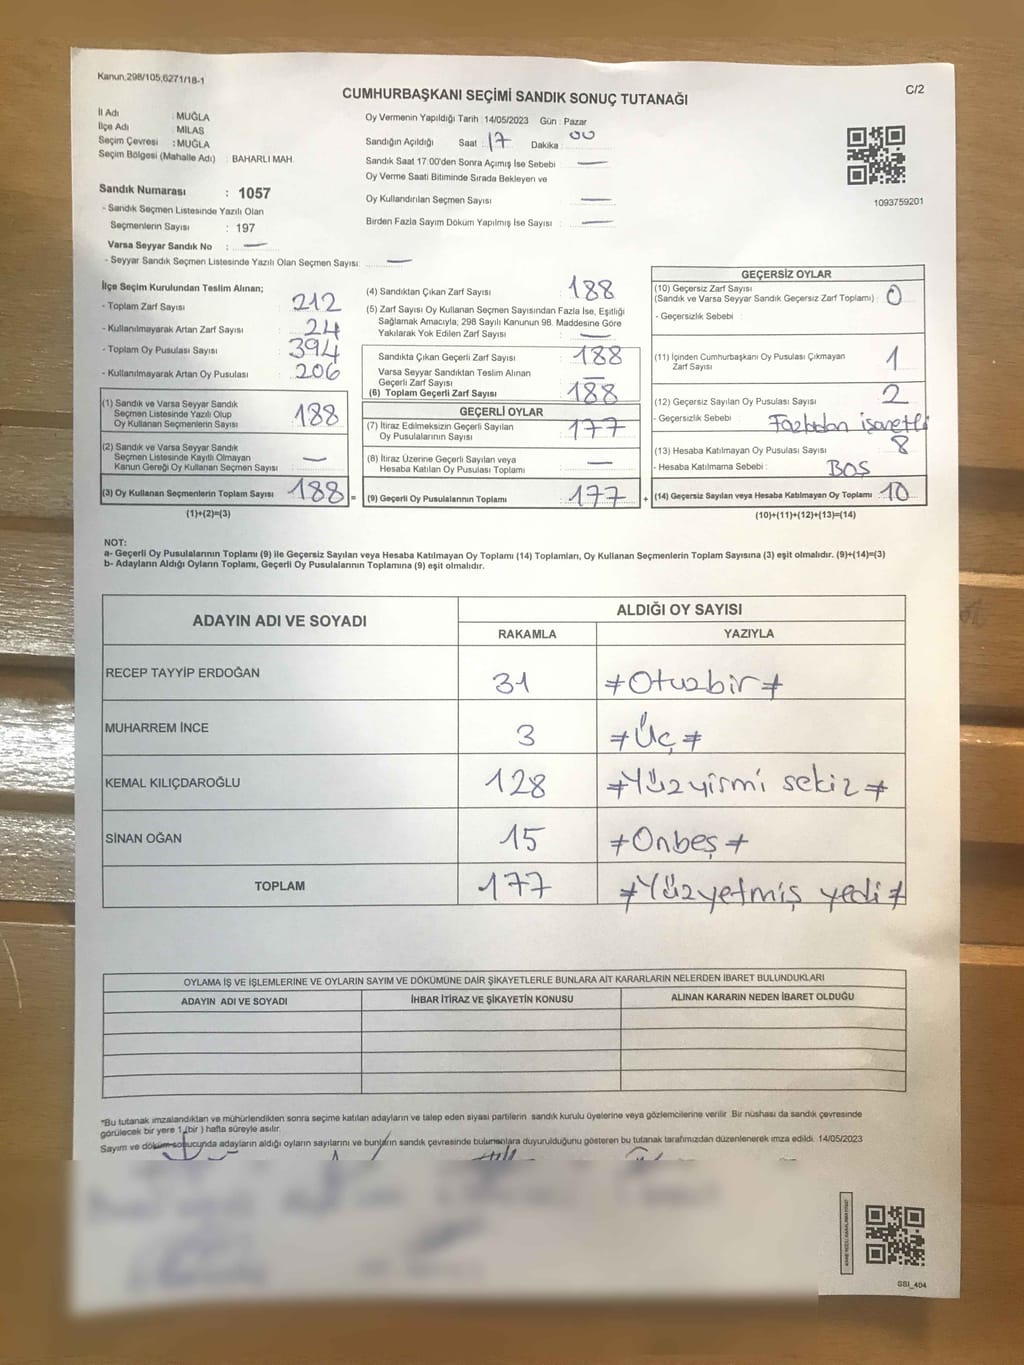 Kanun,298/105,6271/18-1
C/2
CUMHURBAŞKANI SEÇİMİ SANDIK SONUÇ TUTANAĞI
İl Adı : MUĞLA
İlçe Adı : MİLAS
Seçim Çevresi : MUĞLA
Seçim Bölgesi (Mahalle Adı) : BAHARLI MAH.
Sandık Numarası : 1057
- Sandık Seçmen Listesinde Yazılı Olan
Seçmenlerin Sayısı : 197
Varsa Seyyar Sandık No : —
- Seyyar Sandık Seçmen Listesinde Yazılı Olan Seçmen Sayısı: —
Oy Vermenin Yapıldığı Tarih :14/05/2023 Gün : Pazar
Sandığın Açıldığı Saat : 17 Dakika : 00
Sandık Saat 17:00'den Sonra Açımış İse Sebebi : —
Oy Verme Saati Bitiminde Sırada Bekleyen ve
Oy Kullandırılan Seçmen Sayısı : —
Birden Fazla Sayım Döküm Yapılmış İse Sayısı : —
1093759201
İlçe Seçim Kurulundan Teslim Alınan;
- Toplam Zarf Sayısı : 212
- Kullanılmayarak Artan Zarf Sayısı : 24
- Toplam Oy Pusulası Sayısı : 394
- Kullanılmayarak Artan Oy Pusulası : 206
(1) Sandık ve Varsa Seyyar Sandık
Seçmen Listesinde Yazılı Olup
Oy Kullanan Seçmenlerin Sayısı : 188
(2) Sandık ve Varsa Seyyar Sandık
Seçmen Listesinde Kayıtlı Olmayan
Kanun Gereği Oy Kullanan Seçmen Sayısı : —
(3) Oy Kullanan Seçmenlerin Toplam Sayısı : 188 =
(1)+(2)=(3)
(4) Sandıktan Çıkan Zarf Sayısı : 188
(5) Zarf Sayısı Oy Kullanan Seçmen Sayısından Fazla İse, Eşitliği
Sağlamak Amacıyla; 298 Sayılı Kanunun 98. Maddesine Göre
Yakılarak Yok Edilen Zarf Sayısı : —
Sandıkta Çıkan Geçerli Zarf Sayısı : 188
Varsa Seyyar Sandıktan Teslim Alınan
Geçerli Zarf Sayısı : —
(6) Toplam Geçerli Zarf Sayısı : 188
GEÇERLİ OYLAR
(7) İtiraz Edilmeksizin Geçerli Sayılan
Oy Pusulalarının Sayısı : 177
(8) İtiraz Üzerine Geçerli Sayılan veya
Hesaba Katılan Oy Pusulası Toplamı : —
(9) Geçerli Oy Pusulalarının Toplamı : 177 +
GEÇERSİZ OYLAR
(10) Geçersiz Zarf Sayısı
(Sandık ve Varsa Seyyar Sandık Geçersiz Zarf Toplamı) : 0
- Geçersizlik Sebebi :
(11) İçinden Cumhurbaşkanı Oy Pusulası Çıkmayan
Zarf Sayısı : 1
(12) Geçersiz Sayılan Oy Pusulası Sayısı : 2
- Geçersizlik Sebebi : Fazladan işaretli
(13) Hesaba Katılmayan Oy Pusulası Sayısı : 8
- Hesaba Katılmama Sebebi : BOŞ
(14) Geçersiz Sayılan veya Hesaba Katılmayan Oy Toplamı : 10
(10)+(11)+(12)+(13)=(14)
NOT:
a- Geçerli Oy Pusulalarının Toplamı (9) ile Geçersiz Sayılan veya Hesaba Katılmayan Oy Toplamı (14) Toplamları, Oy Kullanan Seçmenlerin Toplam Sayısına (3) eşit olmalıdır. (9)+(14)=(3)
b- Adayların Aldığı Oyların Toplamı, Geçerli Oy Pusulalarının Toplamına (9) eşit olmalıdır.
ADAYIN ADI VE SOYADI
ALDIĞI OY SAYISI
RAKAMLA YAZIYLA
RECEP TAYYİP ERDOĞAN 31 ≠Otuzbir≠
MUHARREM İNCE 3 ≠Üç≠
KEMAL KILIÇDAROĞLU 128 ≠Yüzyirmi sekiz≠
SİNAN OĞAN 15 ≠Onbeş≠
TOPLAM 177 ≠Yüzyetmiş yedi≠
OYLAMA İŞ VE İŞLEMLERİNE VE OYLARIN SAYIM VE DÖKÜMÜNE DAİR ŞİKAYETLERLE BUNLARA AİT KARARLARIN NELERDEN İBARET BULUNDUKLARI
ADAYIN ADI VE SOYADI İHBAR İTİRAZ VE ŞİKAYETİN KONUSU ALINAN KARARIN NEDEN İBARET OLDUĞU
*Bu tutanak imzalandıktan ve mühürlendikten sonra seçime katılan adayların ve talep eden siyasi partilerin sandık kurulu üyelerine veya gözlemcilerine verilir. Bir nüshası da sandık çevresinde
görülecek bir yere 1 (bir ) hafta süreyle asılır.
Sayım ve döküm sonucunda adayların aldığı oyların sayılarını ve bunların sandık çevresinde bulunanlara duyurulduğunu gösteren bu tutanak tarafımızdan düzenlenerek imza edildi. 14/05/2023
SSI_404